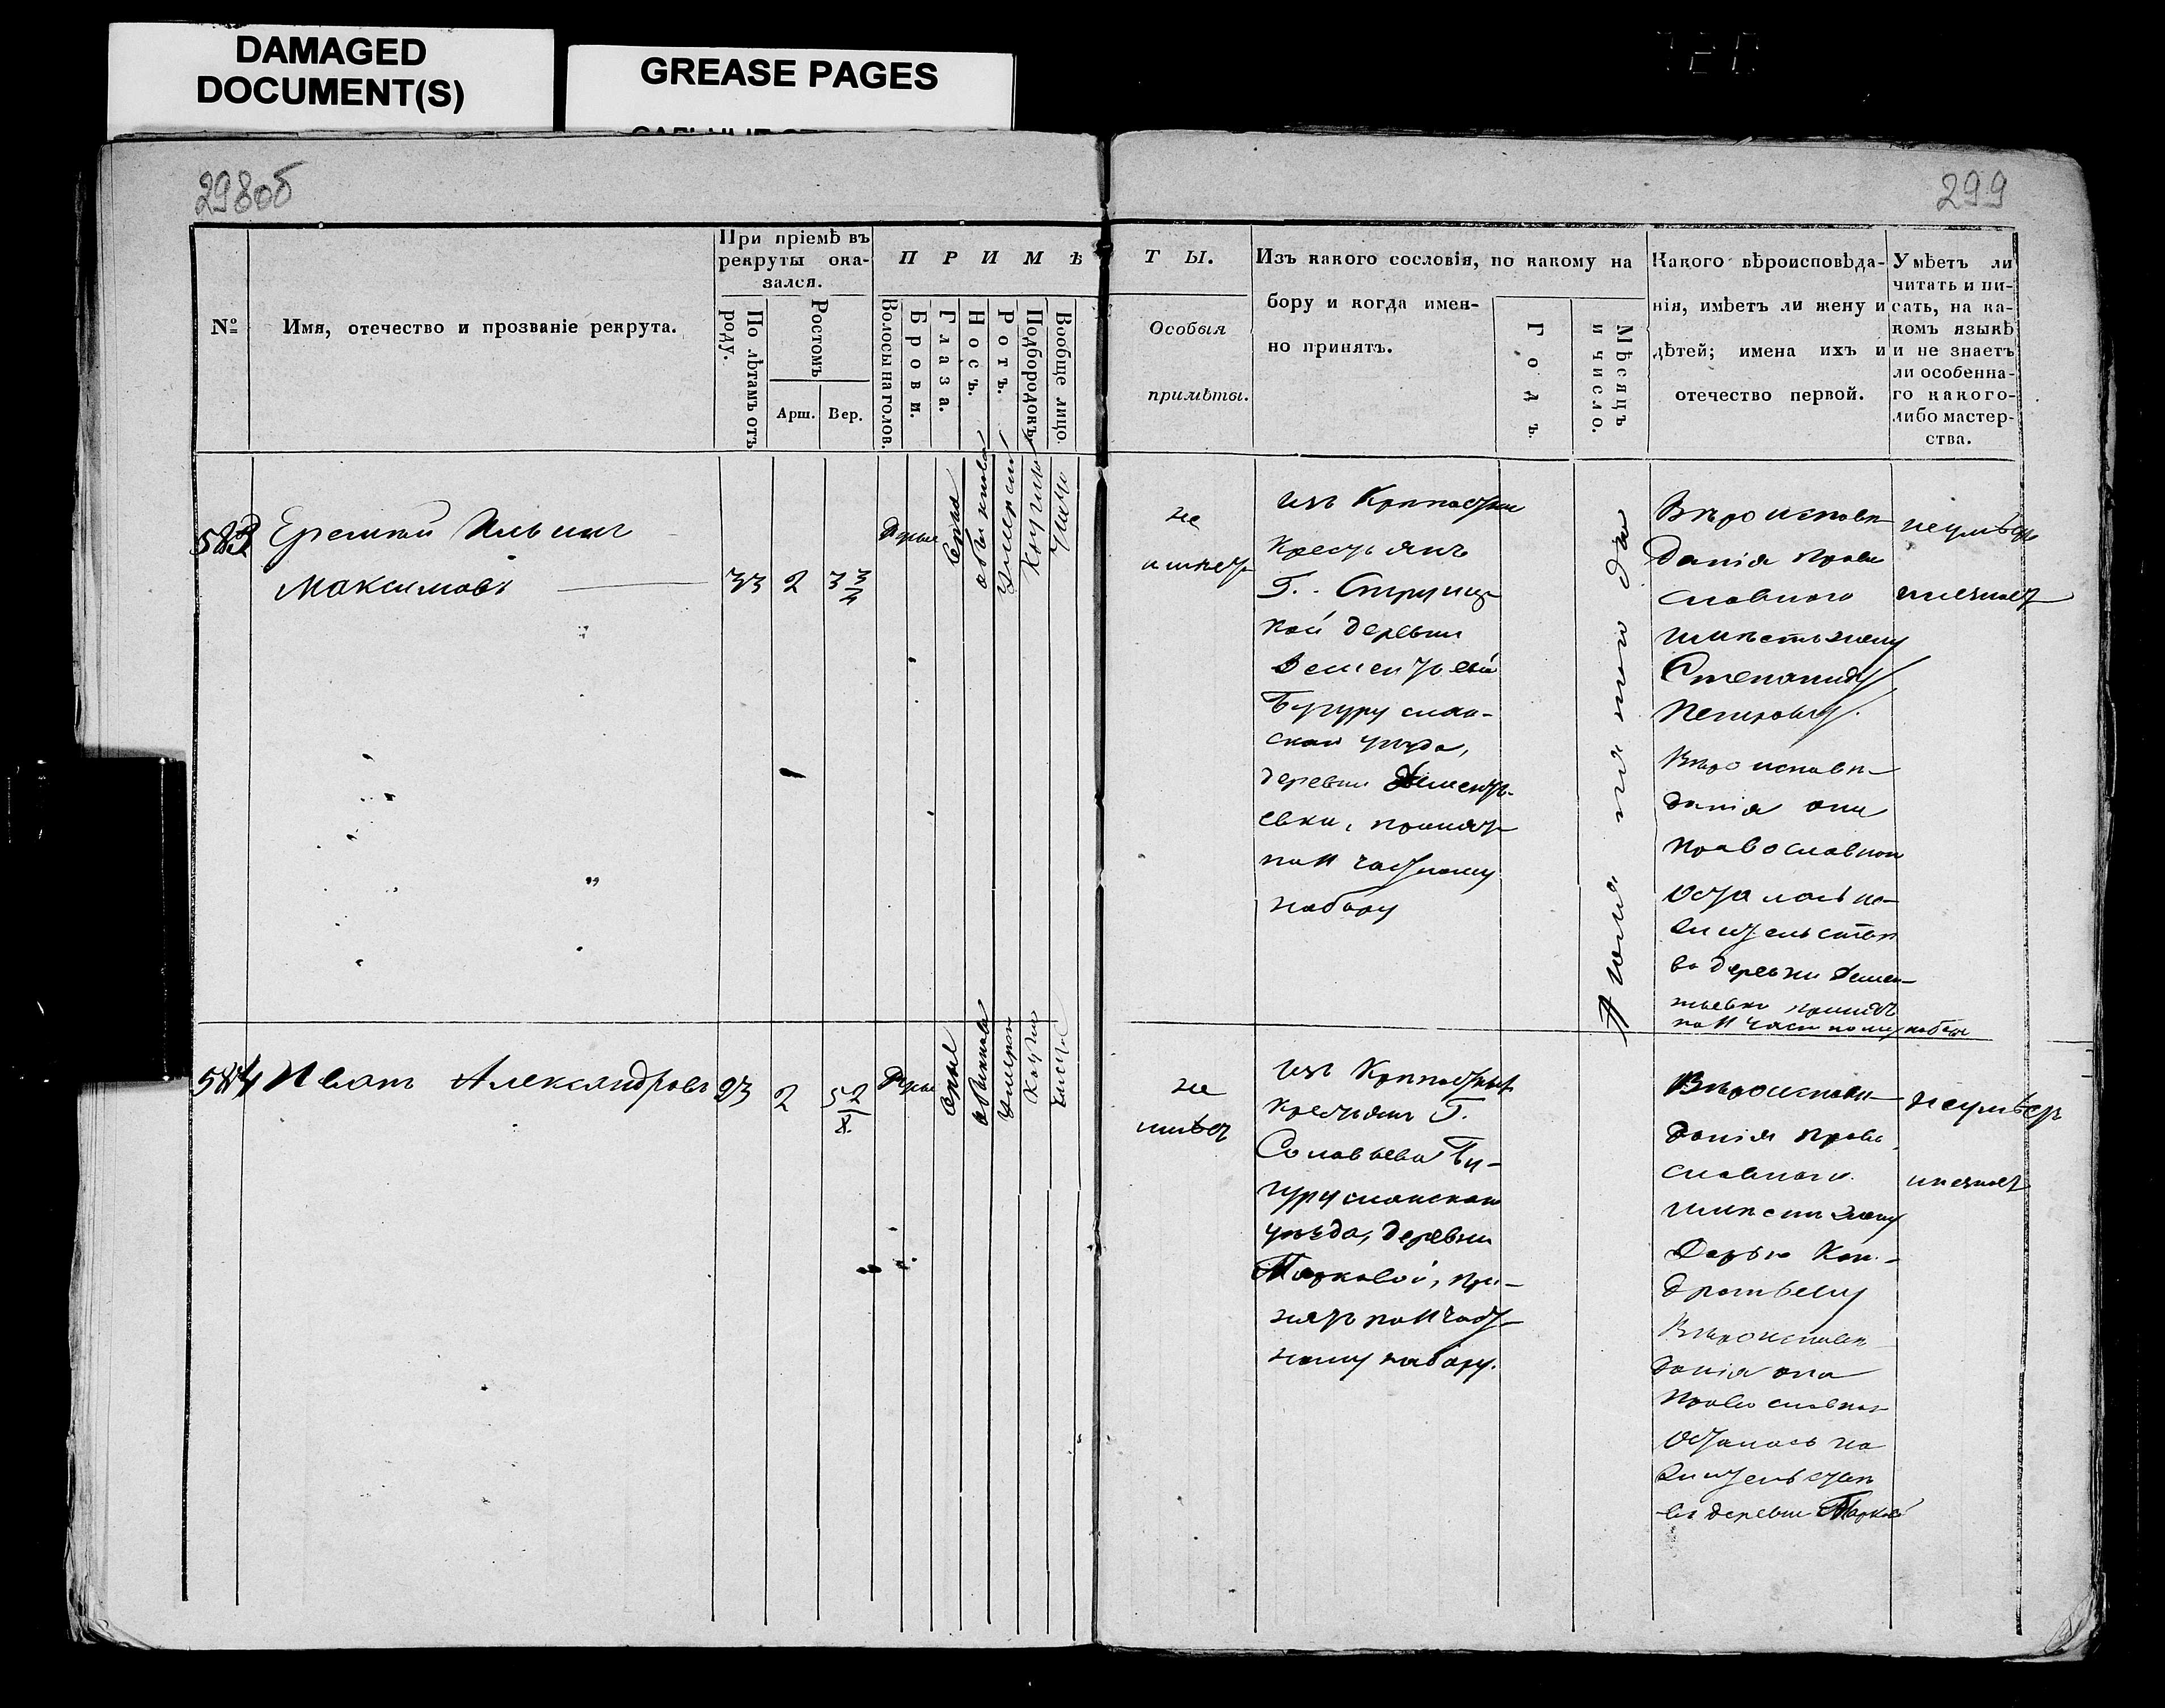 DAMAGED
DOCUMENT(S)
GREASE PAGES
298об
299
№
Имя, отечество и прозваніе рекрута.
При пріемѣ въ
рекруты ока-
зался.
По лѣтамъ отъ
роду.
Ростомъ
Арш.
Вер.
ПРИМѢ
Волосы на голов.
Брови.
Глаза.
Носъ.
Ротъ.
Подбородокъ
Вообще лицо.
ТЫ.
Особыя
примѣты.
Изъ какого сословія, по какому на
бору и когда имен-
но принятъ.
Годъ.
Мѣсяцъ
и число.
Какого вѣроисповѣда-
нія, имѣетъ ли жену и
дѣтей; имена ихъ и
отечество первой.
Умѣетъ ли
читать и пи-
сать, на ка-
комъ языкѣ
и не знаетъ
ли особенна-
го какого-
либо мастер-
ства.
583
Еремѣй Ильинъ
Максимовъ
33 2 3 3/4
Серые
обыкнов
умерен
Кругл
Чисто
не
имѣет
изъ Крѣпостн
крестьянъ
Г. Струйс
кой деревни
Дементьевки
Бугурусла-
скаго уѣзда,
деревни Дементь-
евки, принятъ
по 11 частному
набору
Вѣроисповѣ
данія право
славного
имѣетъ жену
Степаниду
Петровну.
Вѣроисповѣ-
данія она
православной
Осталась на
жительствѣ
въ деревни Демен-
тьевки принятъ
по 11 частному набору
неумѣетъ
инезнает
584
Иванъ Александровъ
23 2 5 2/8.
Серые
обыкнов
умерен
Кругл
Чистое
не
имѣет
изъ Крѣпостных
крестьянъ Г.
Соловьева Бу-
гурусланскаго
уѣзда, деревни
Марковой, при-
нятъ по 11 част-
ному набору.
Вѣроисповѣ-
данія право
славного.
имѣетъ жену
Дарью Кон-
дратьеву
Вѣроисповѣ
данія она
православной
Осталась на
жительствѣ
въ деревни Марковой
неумѣетъ
инезнает